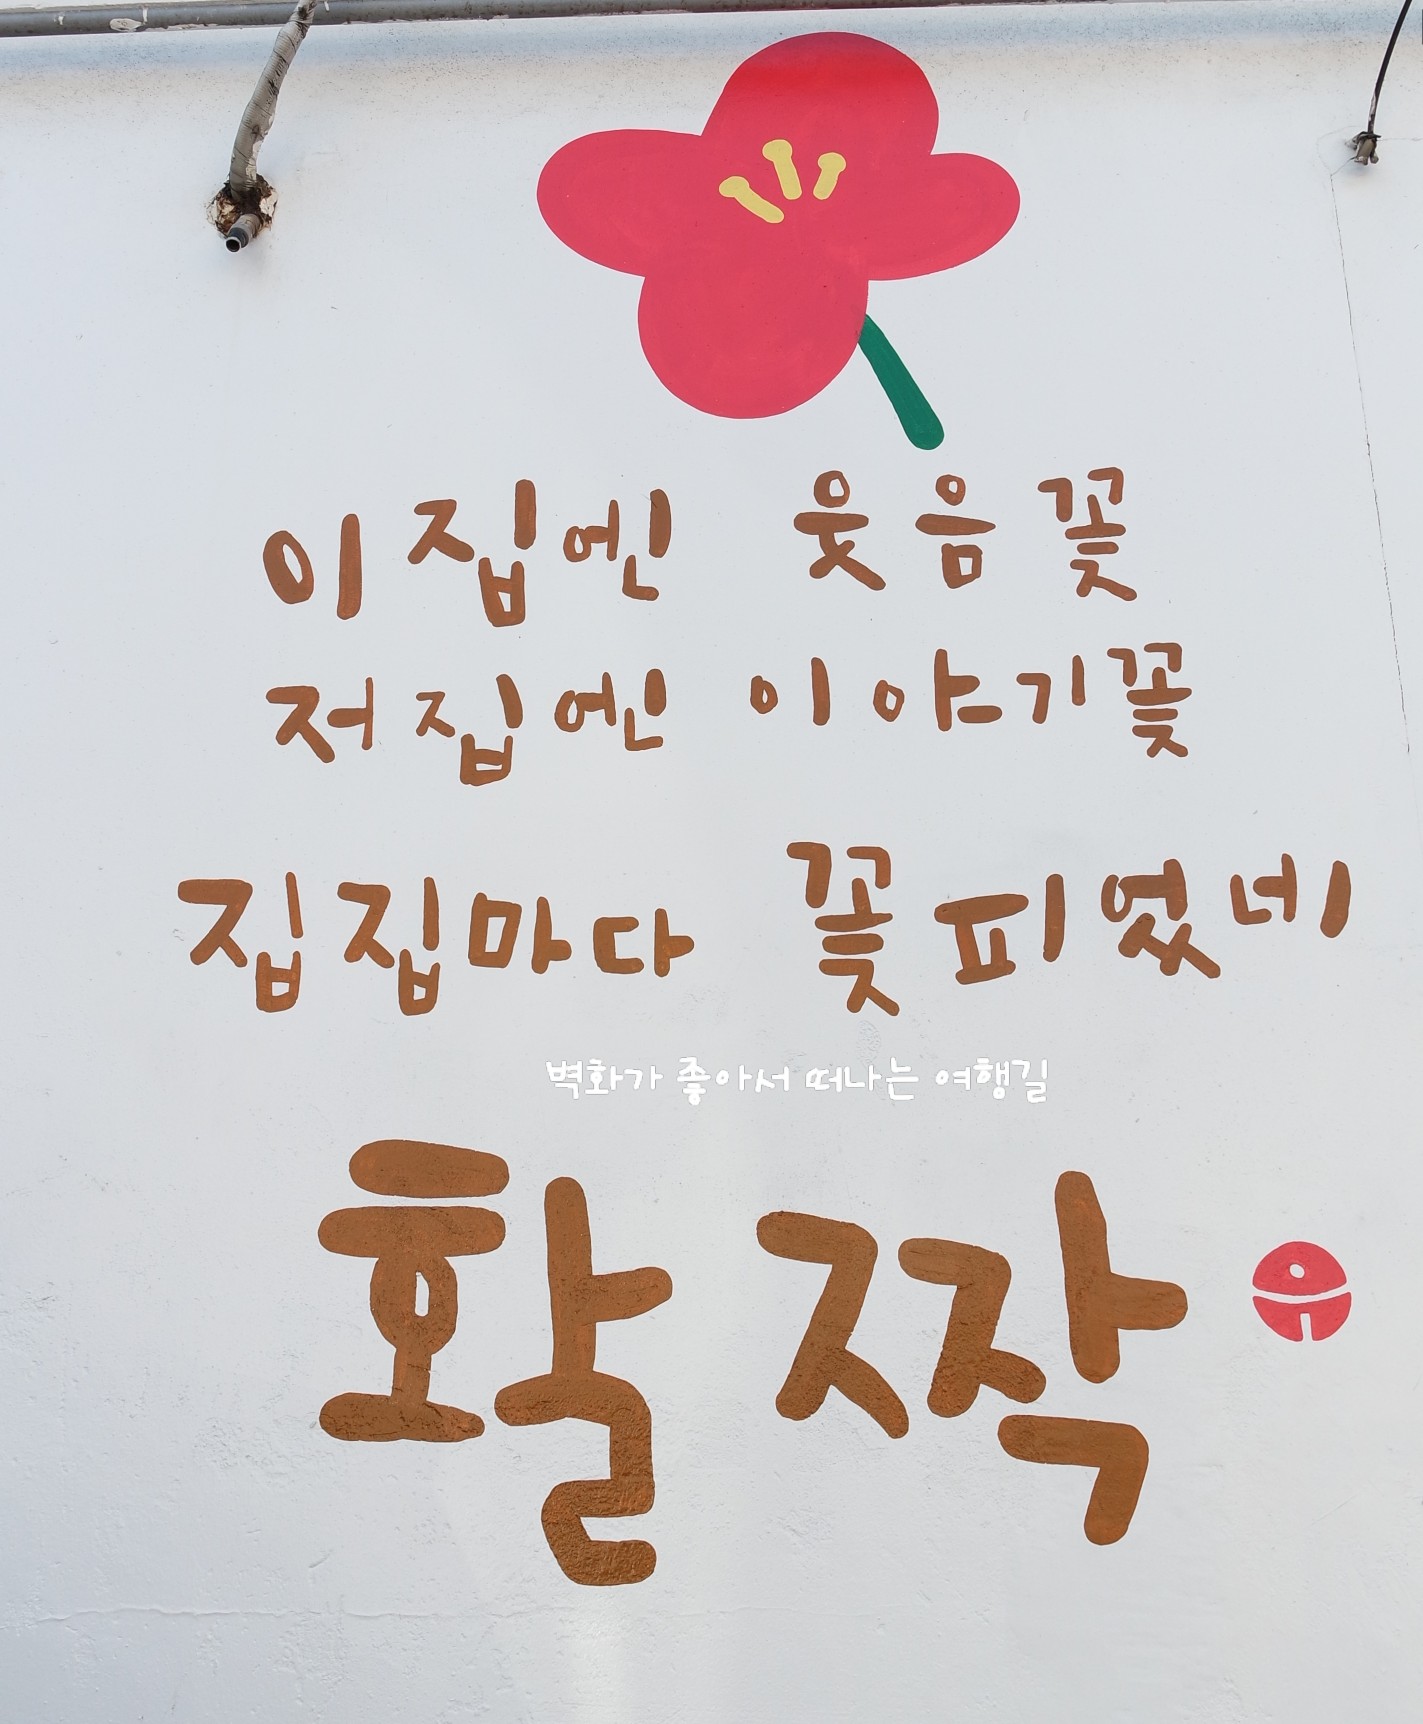 이 집엔 웃음꽃
저 집엔 이야기꽃
집집마다 꽃 피었네
벽화가 좋아서 떠나는 여행길
활짝